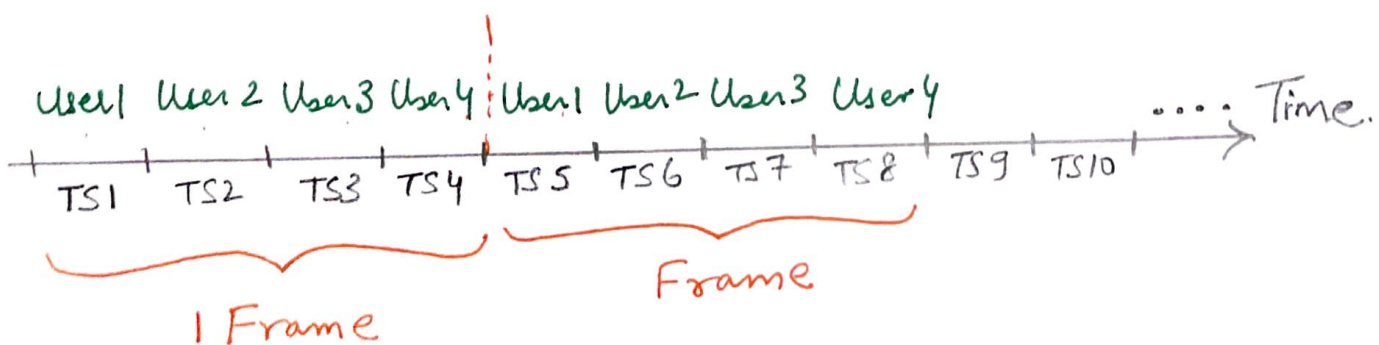 User1 User 2 User3 User4 User1 User2 User3 User4
.... Time.
TS1 TS2 TS3 TS4 TS5 TS6 TS7 TS8 TS9 TS10
1 Frame
Frame